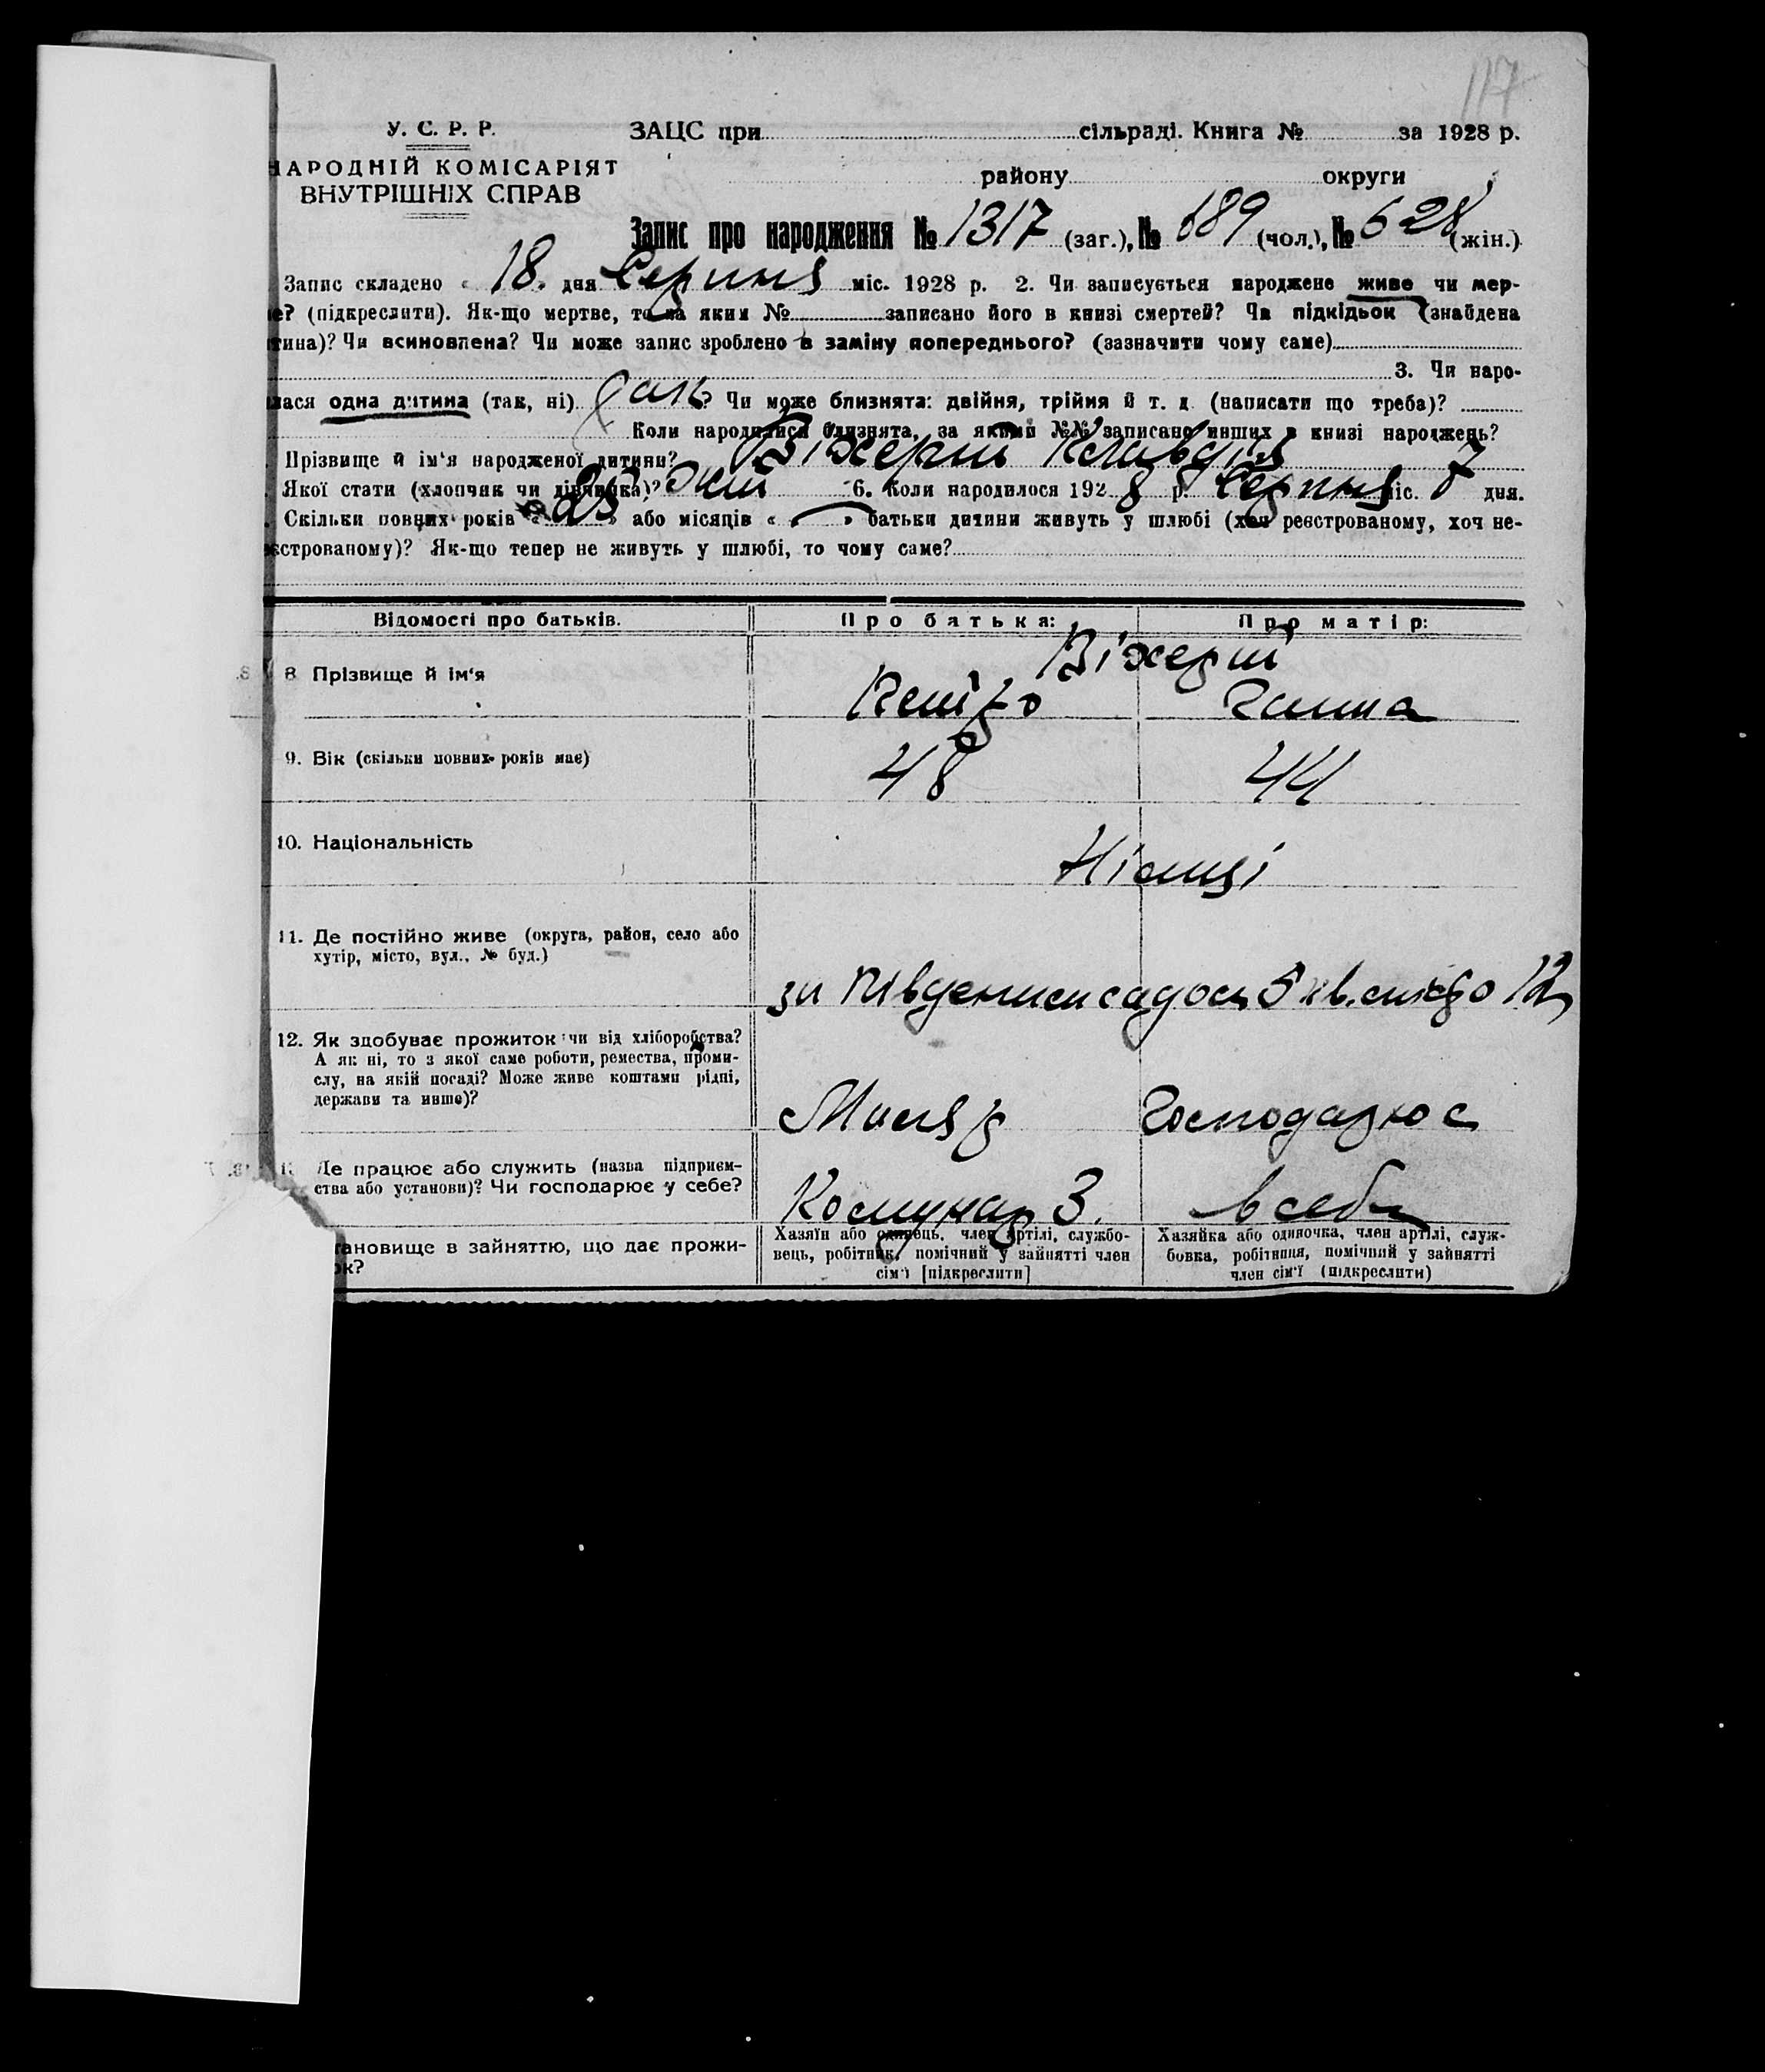 117
У. С. Р. Р.
НАРОДНІЙ КОМІСАРІЯТ
ВНУТРІШНІХ СПРАВ
ЗАЦС при сільраді. Книга № за 1928 р.
району округи
Запис про народження № 1317 (заг.), № 689 (чол.), № 628 (жін.)
Запис складено « 18. дня Серпня міс. 1928 р. 2. Чи записується народжене живе чи мер-
е? (підкреслити). Як-що мертве, то за яким № записано його в книзі смертей? Чи підкідьок (знайдена
тина)? Чи всиновлена? Чи може запис зроблено в заміну попереднього? (зазначити чому саме)
3. Чи наро-
лася одна дитина (так, ні) так? Чи може близнята: двійня, трійня й т. д. (написати що треба)?
Коли народилися близнята, за якими №№ записано инших в книзі народжень?
Прізвище й ім'я народженої дитини? Клавдія
Якої стати (хлопчик чи дівчинка)? жін 6. Коли народилося 1928 р. Серпня міс. 7 дня.
Скільки повних років « 25 » або місяців « — » батьки дитини живуть у шлюбі (хоч реєстрованому, хоч не-
єстрованому)? Як-що тепер не живуть у шлюбі, то чому саме?
Відомості про батьків. Про батька: Про матір:
8 Прізвище й ім'я
Ганна
9. Вік (скільки повних років має) 48 44
10. Національність Німці
11. Де постійно живе (округа, район, село або
хутір, місто, вул., № буд.)
за Південним садом 5 кв. 12
12. Як здобуває прожиток чи від хліборобства?
А як ні, то з якої саме роботи, ремества, проми-
слу, на якій посаді? Може живе коштами рідні,
держави та инше)?
Маляр Господарює
Де працює або служить (назва підприєм-
ства або установи)? Чи господарює у себе?
Комунар З. в себе
тановище в зайняттю, що дає прожи-
ок?
Хазяїн або одинець, член артілі, службо-
вець, робітник, помічний у зайнятті член
сім'ї [підкреслити]
Хазяйка або одиночка, член артілі, служ-
бовка, робітниця, помічний у зайнятті
член сім'ї (підкреслити)